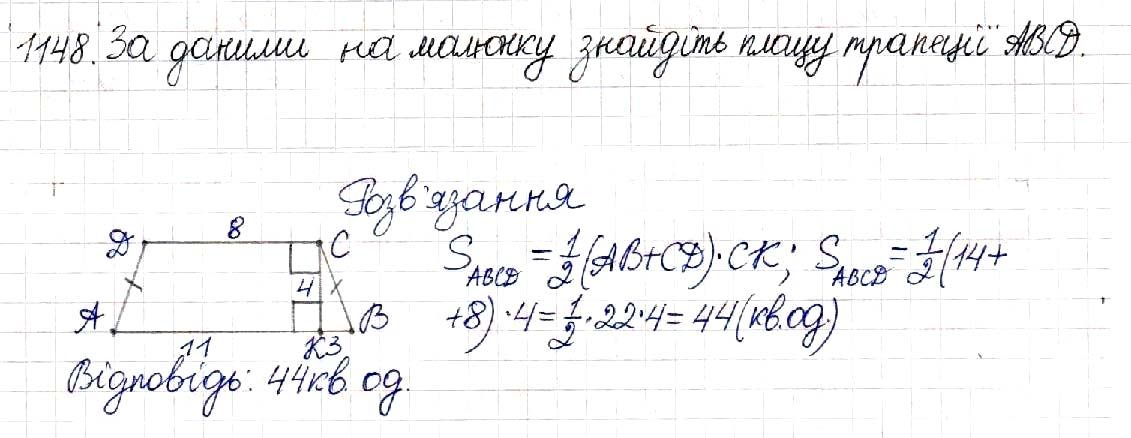 1148. За даними на малюнку знайдіть площу трапеції ABCD.
Розв'язання
D 8 C
4
A B
11 K 3
S_ABCD = 1/2 (AB+CD)·CK; S_ABCD = 1/2 (14+
+8)·4 = 1/2·22·4 = 44 (кв.од.)
Відповідь: 44 кв. од.